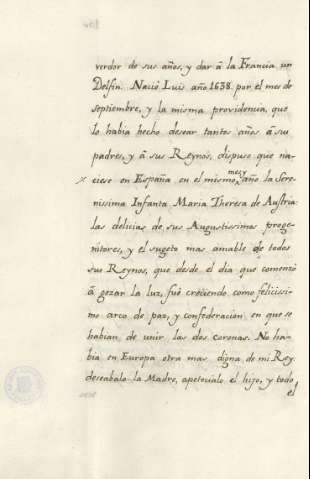 verdor de sus años, y dar â la Francia un
Delfin. Naciò Luis año 1638. por el mes de
septiembre, y la misma providencia, que
lo habia hecho desear tantos años â su
padres, y â sus Reynos, dispuso que na-
ciese en España en el mismo mes, y año la Sere-
nissima Infanta Maria Theresa de Austria:
las delicias de sus Augustissimos proge-
nitores, y el sugeto mas amable de todos
sus Reynos, que desde el dia que comenzò
â gozar la luz, fuè creciendo como felicissi-
mo arco de paz, y confederacion en que se
habian de unir las dos coronas. No ha-
bia en Europa otra mas digna de mi Rey.
deseabalo la Madre, apeteciàlo el hijo, y todo
el